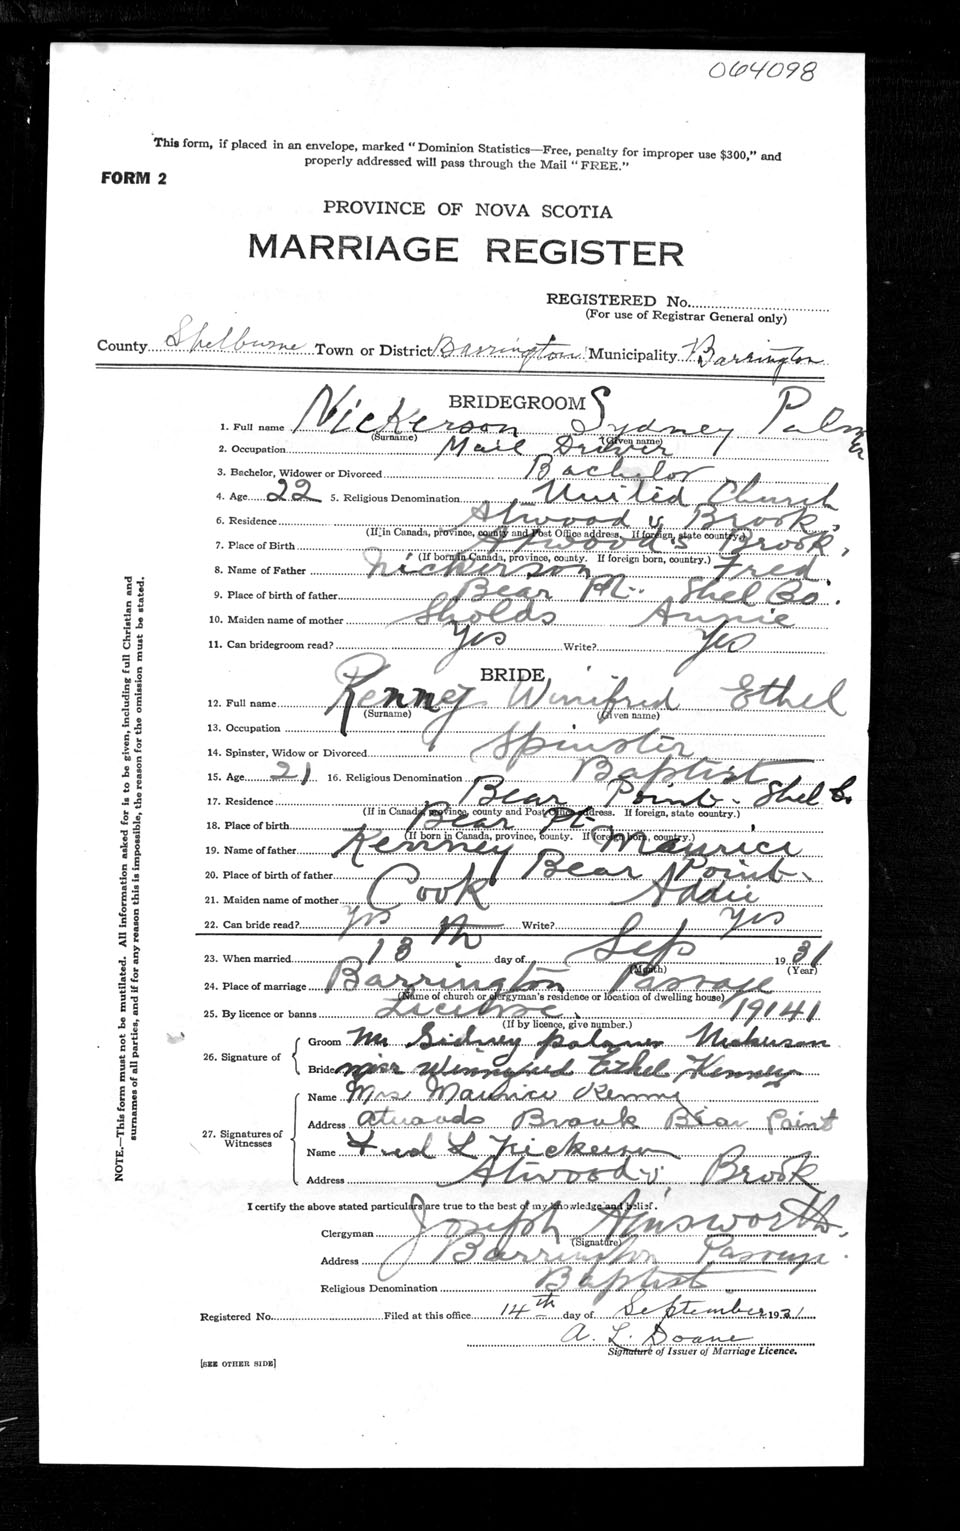 064098
This form, if placed in an envelope, marked "Dominion Statistics—Free, penalty for improper use $300," and
properly addressed will pass through the Mail "FREE."
FORM 2
PROVINCE OF NOVA SCOTIA
MARRIAGE REGISTER
REGISTERED No.
(For use of Registrar General only)
County Shelburne Town or District Barrington Municipality Barrington
BRIDEGROOM
1. Full name Nickerson Sydney Palmer
(Surname) (Given name)
2. Occupation Mail Driver
3. Bachelor, Widower or Divorced Bachelor
4. Age 22 5. Religious Denomination United Church
6. Residence Atwood's Brook,
(If in Canada, province, county and Post Office address. If foreign, state country.)
7. Place of Birth Atwood's Brook,
(If born in Canada, province, county. If foreign born, country.)
8. Name of Father Nickerson Fred.
9. Place of birth of father Bear Pt. Shel Co.
10. Maiden name of mother Sholds Annie
11. Can bridegroom read? Yes Write? Yes
BRIDE
12. Full name Kenney Winifred Ethel
(Surname) (Given name)
13. Occupation
14. Spinster, Widow or Divorced Spinster
15. Age 21 16. Religious Denomination Baptist
17. Residence Bear Point - Shel Co
(If in Canada, province, county and Post Office address. If foreign, state country.)
18. Place of birth Bear Pt
(If born in Canada, province, county. If foreign born, country.)
19. Name of father Kenney Maurice
20. Place of birth of father Bear Point.
21. Maiden name of mother Cook Addie
22. Can bride read? Yes Write? Yes
23. When married 13th day of Sep 1931
(Month) (Year)
24. Place of marriage Barrington Passage
(Name of church or clergyman's residence or location of dwelling house)
25. By licence or banns License. 19141
(If by licence, give number.)
26. Signature of
Groom Mr Sidney palmer Nickerson
Bride miss Winnifred Ethel Kenney
27. Signatures of Witnesses
Name Mrs Maurice Kenny
Address atwoods Brook Bear Point
Name Fred L Nickerson
Address Atwood's Brook
I certify the above stated particulars are true to the best of my knowledge and belief.
Clergyman Joseph Ainsworth,
(Signature)
Address Barrington Passage.
Religious Denomination Baptist
Registered No. Filed at this office 14th day of September 1931
A. L. Doane
Signature of Issuer of Marriage Licence.
[SEE OTHER SIDE]
NOTE.—This form must not be mutilated. All information asked for is to be given, including full Christian and
surnames of all parties, and if for any reason this is impossible, the reason for the omission must be stated.